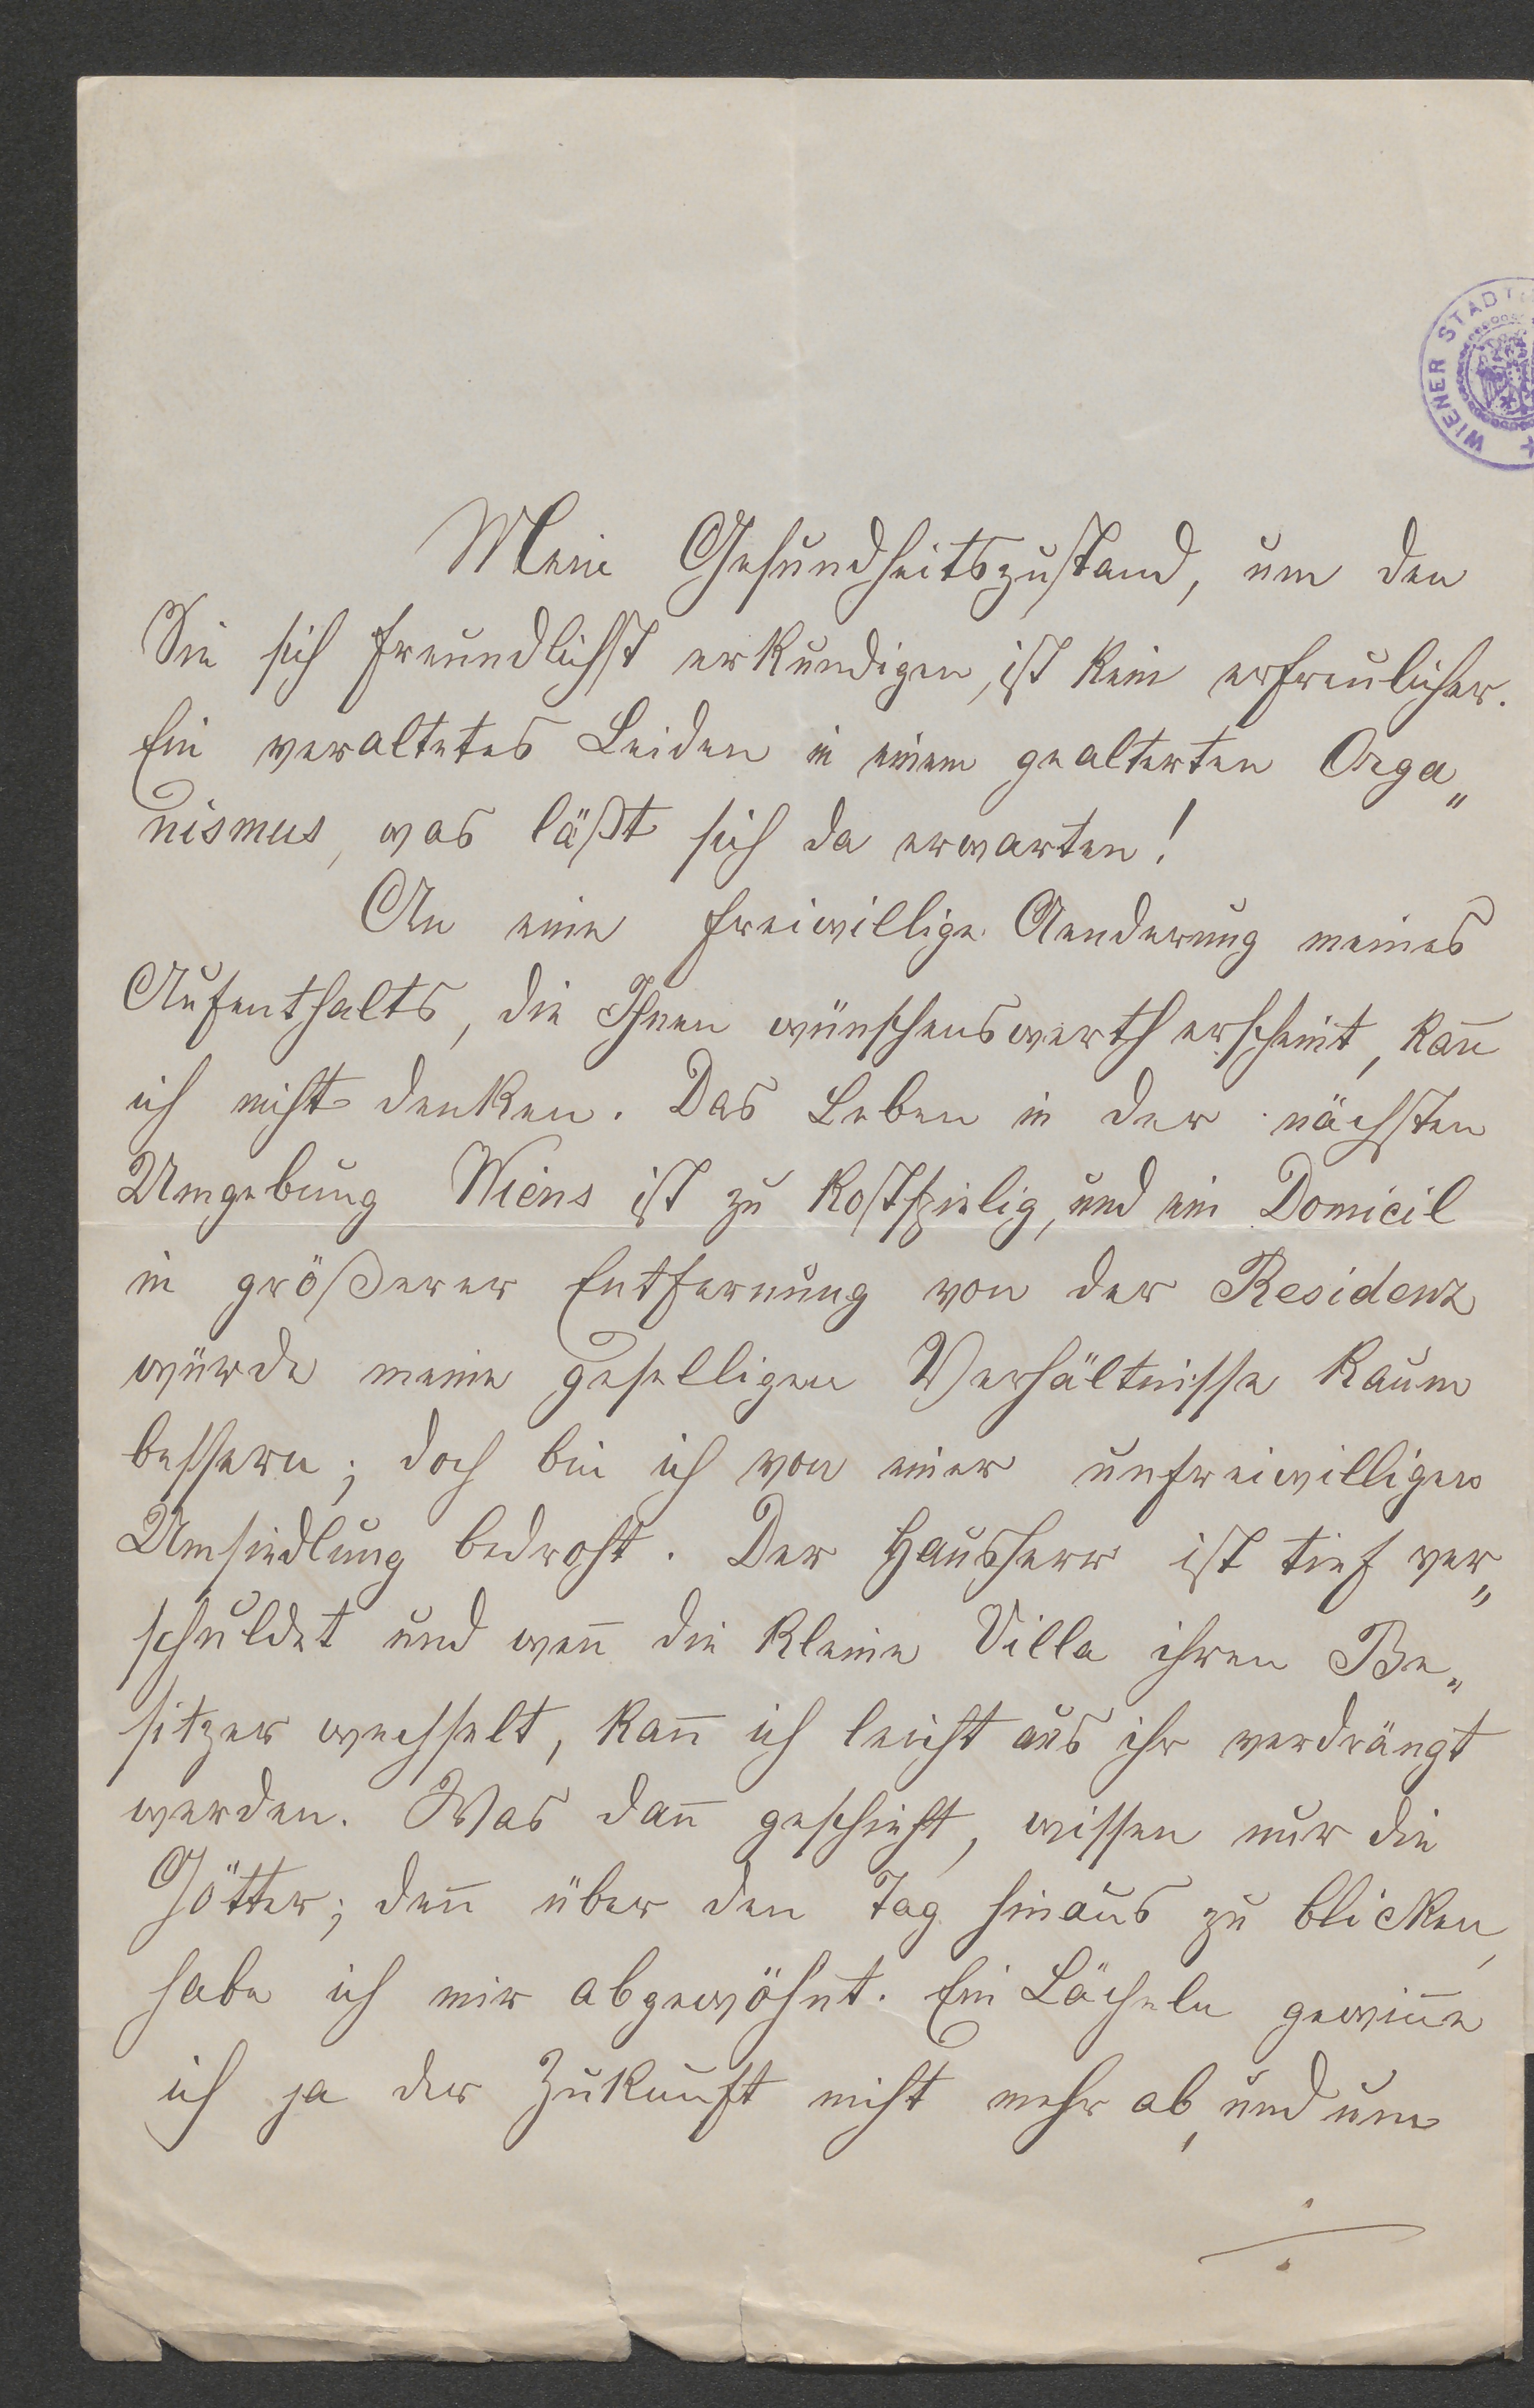 WIENER STADT
Mein Gesundheitszustand, um den
Sie sich freundlichst erkundigen, ist kein erfreulicher.
Ein veraltetes Leiden in einem gealterten Orga„
nismus, was läßt sich da erwarten!
An eine freiwillige Aenderung meines
Aufenthalts, die Ihnen wünschenswerth erscheint, kan̄
ich nicht denken. Das Leben in der nächsten
Umgebung Wiens ist zu kostspielig, und ein Domicil
in größerer Entfernung von der Residenz
würde meine geselligen Verhältnisse kaum
bessern; doch bin ich von einer unfreiwilligen
Umsiedlung bedroht. Der Hausherr ist tief ver„
schuldet und wen̄ die kleine Villa ihren Be„
sitzer wechselt, kan̄ ich leicht aus ihr verdrängt
werden. Was dan̄ geschieht, wissen nur die
Götter; den̄ über den Tag hinaus zu blicken,
habe ich mir abgewöhnt. Ein Lächeln gewin̄e
ich ja der Zukunft nicht mehr ab, und um